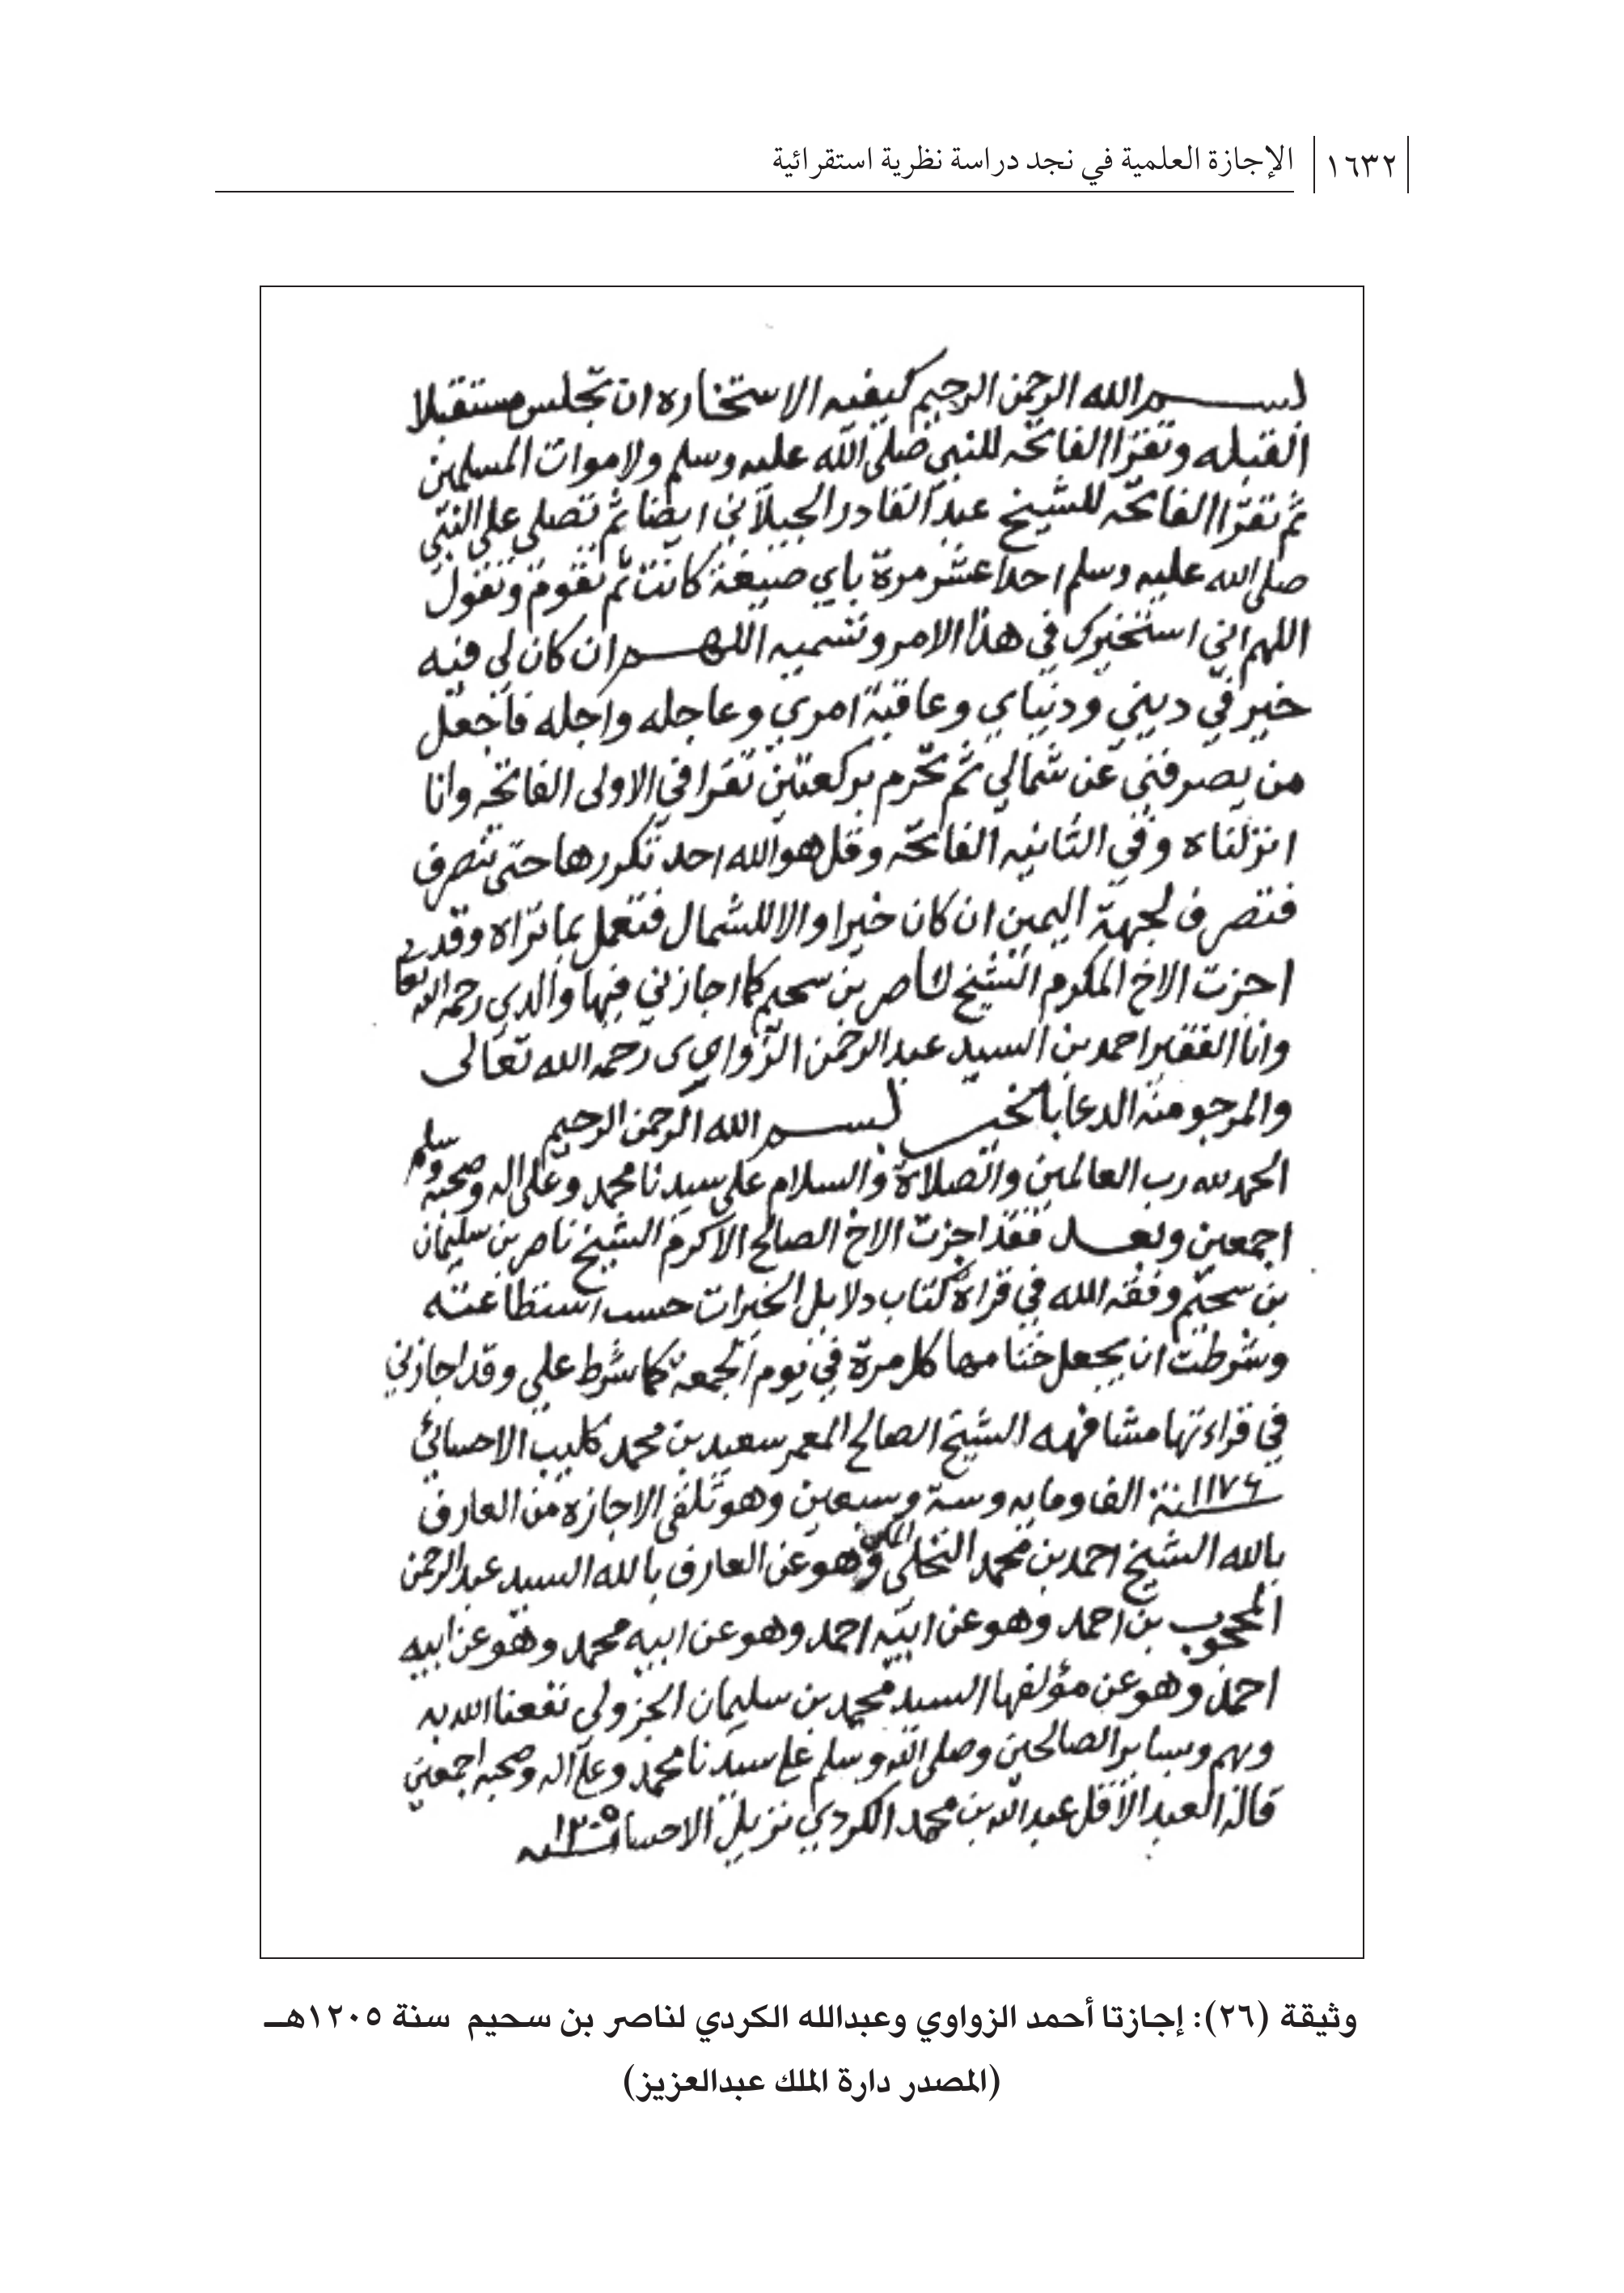 ١٦٣٢ الإجازة العلمية في نجد دراسة نظرية استقرائية
بسم الله الرحمن الرحيم كيفيه الاستخاره ان تجلس مستقبلا
القبله وتقرا الفاتحه للنبي صلى الله عليه وسلم ولاموات المسلمين
ثم تقرا الفاتحه للشيخ عبد القادر الجيلاني ايضا ثم تصلي على النبي
صلى الله عليه وسلم احدا عشر مرة باي صيغة كانت ثم تقوم وتقول
اللهم اني استخيرك في هذا الامر وتسميه اللهم ان كان لي فيه
خير في ديني ودنياي وعاقبة امري وعاجله واجله فاجعل
من يصرفني عن شمالي ثم تحرم بركعتين تقرا في الاولى الفاتحه وانا
انزلناه وفي الثانيه الفاتحه وقل هو الله احد تكررها حتى تنصرف
فتصرف لجهة اليمين ان كان خيرا والا للشمال فتعمل بما تراه وقد
اجزت الاخ المكرم الشيخ ناصر بن سحيم كما اجازني فيها والدي رحمه الله تعالى
وانا الفقير احمد بن السيد عبد الرحمن الزواوي رحمه الله تعالى
والمرجو منه الدعا بالخير بسم الله الرحمن الرحيم
الحمد لله رب العالمين والصلاة والسلام على سيدنا محمد وعلى اله وصحبه وسلم
اجمعين وبعد فقد اجزت الاخ الصالح الاكرم الشيخ ناصر بن سليمان
بن سحيم وفقه الله في قراة كتاب دلايل الخيرات حسب استطاعته
وشرطت ان يجعل ختامها كل مرة في يوم الجمعه كما شرط علي وقد اجازني
في قراءتها مشافهه الشيخ الصالح المعمر سعيد بن محمد كليب الاحسائي
سنة ١١٧٦ الف ومايه وستة وسبعين وهو تلقى الاجازه من العارف
بالله الشيخ احمد بن محمد النخلي المكي وهو عن العارف بالله السيد عبد الرحمن
المحجوب بن احمد وهو عن ابيه احمد وهو عن ابيه محمد وهو عن ابيه
احمد وهو عن مؤلفها السيد محمد بن سليمان الجزولي نفعنا الله به
وبهم وبساير الصالحين وصلى الله وسلم على سيدنا محمد وعلى اله وصحبه اجمعين
قاله العبد الاقل عبد الله بن محمد الكردي نزيل الاحسا سنة ١٢٠٥
وثيقة (٢٦): إجازتا أحمد الزواوي وعبدالله الكردي لناصر بن سحيم سنة ١٢٠٥هـ
(المصدر دارة الملك عبدالعزيز)